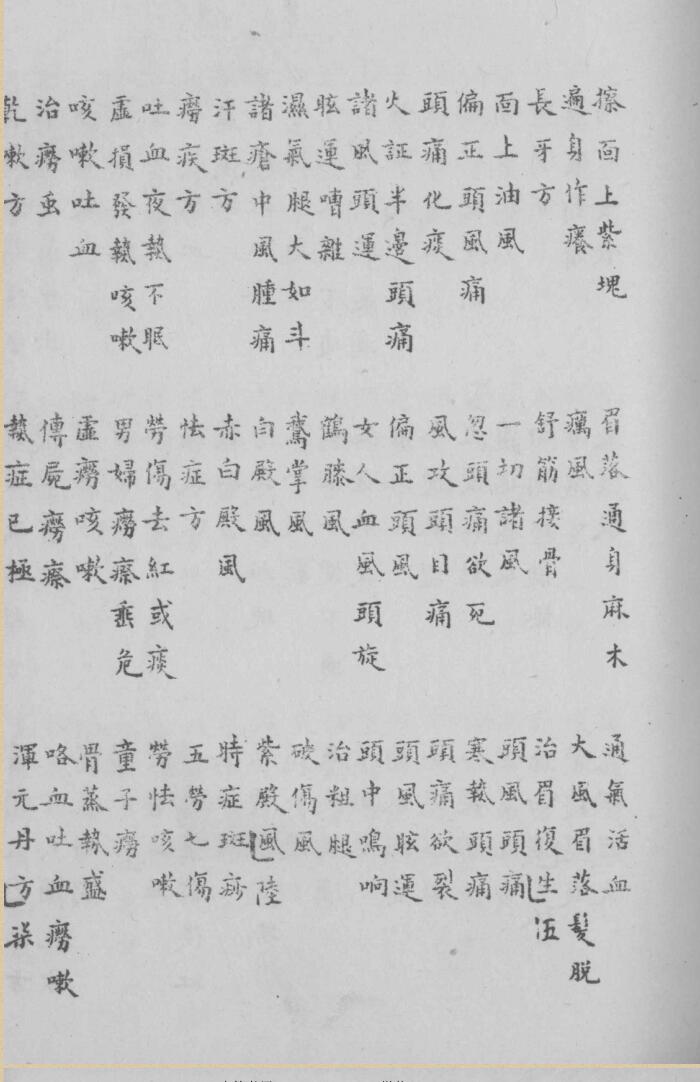 擦面上紫塊 眉落通身麻木 通氣活血
遍身作癢 癘風 大風眉落髮脱
長牙方 舒筋接骨 治眉復生 伍
面上油風 一切諸風 頭風頭痛
偏正頭風痛 忽頭痛欲死 寒熱頭痛
頭痛化痰 風攻頭目痛 頭痛欲裂
火証半邊頭痛 偏正頭風 頭風眩運
諸風頭運 女人血風頭旋 頭中鳴响
眩運嘈雜 鶴膝風 治粗腿
濕氣腿大如斗 鵞掌風 破傷風
諸瘡中風腫痛 白殿風 紫殿風 陸
汗斑方 赤白殿風 時症斑痧
癆疾方 怯症方 五勞七傷
吐血夜熱不眠 勞傷去紅或痰 勞怯咳嗽
虛損發熱咳嗽 男婦癆瘵垂危 童子癆
咳嗽吐血 虛癆咳嗽 骨蒸熱盛
治癆虫 傳屍癆瘵 咯血吐血癆嗽
乾嗽方 熱症已極 渾元丹方 柒